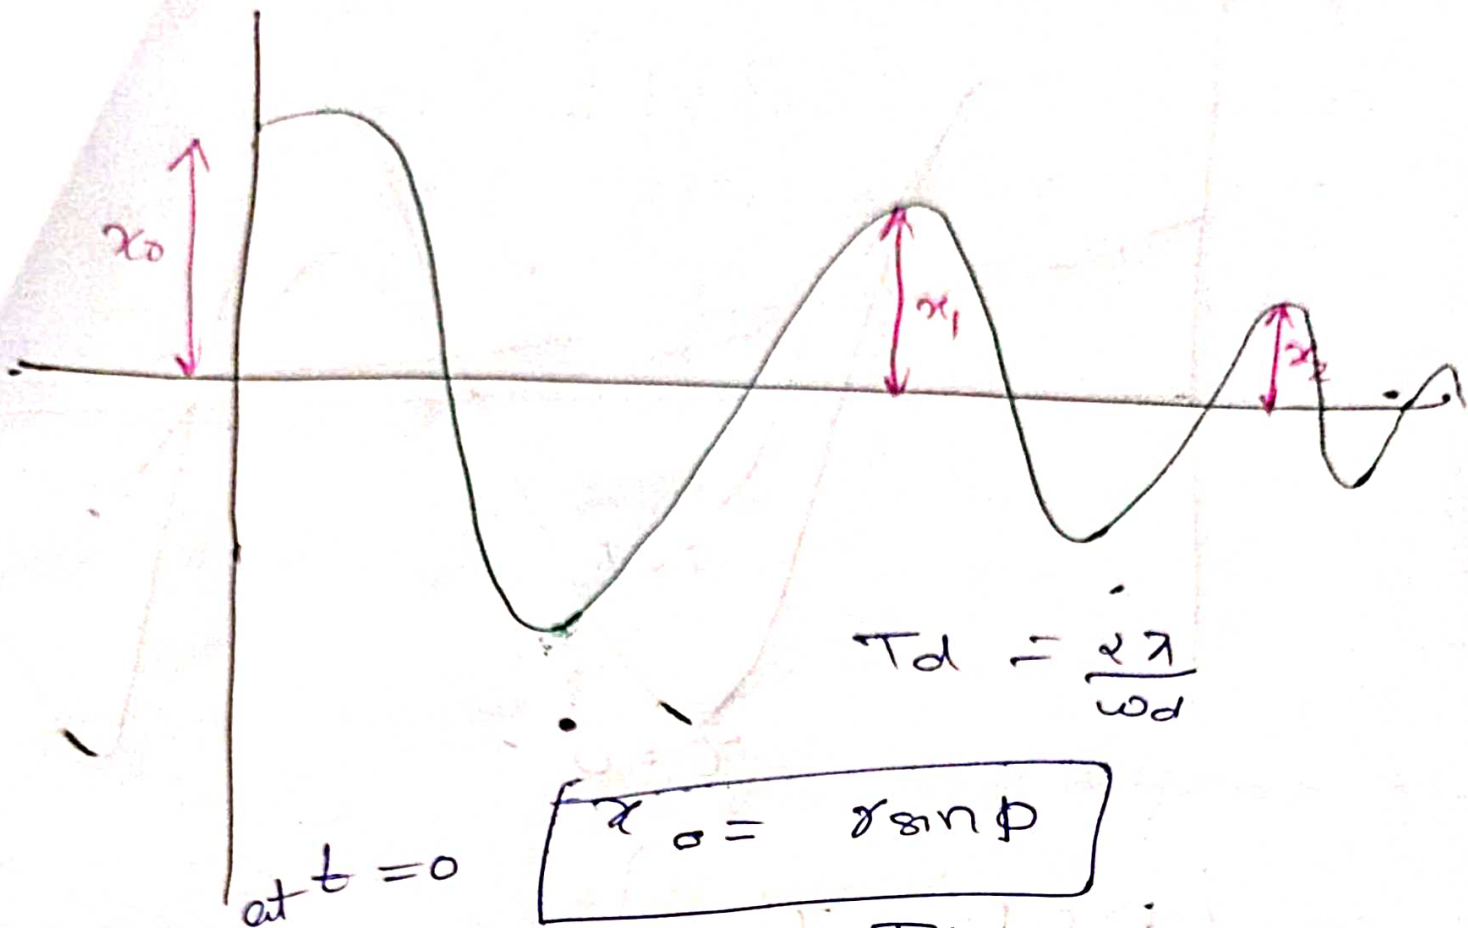 x₀
x₁
x₂
Td = 2π / ωd
at t = 0
x₀ = r sin φ